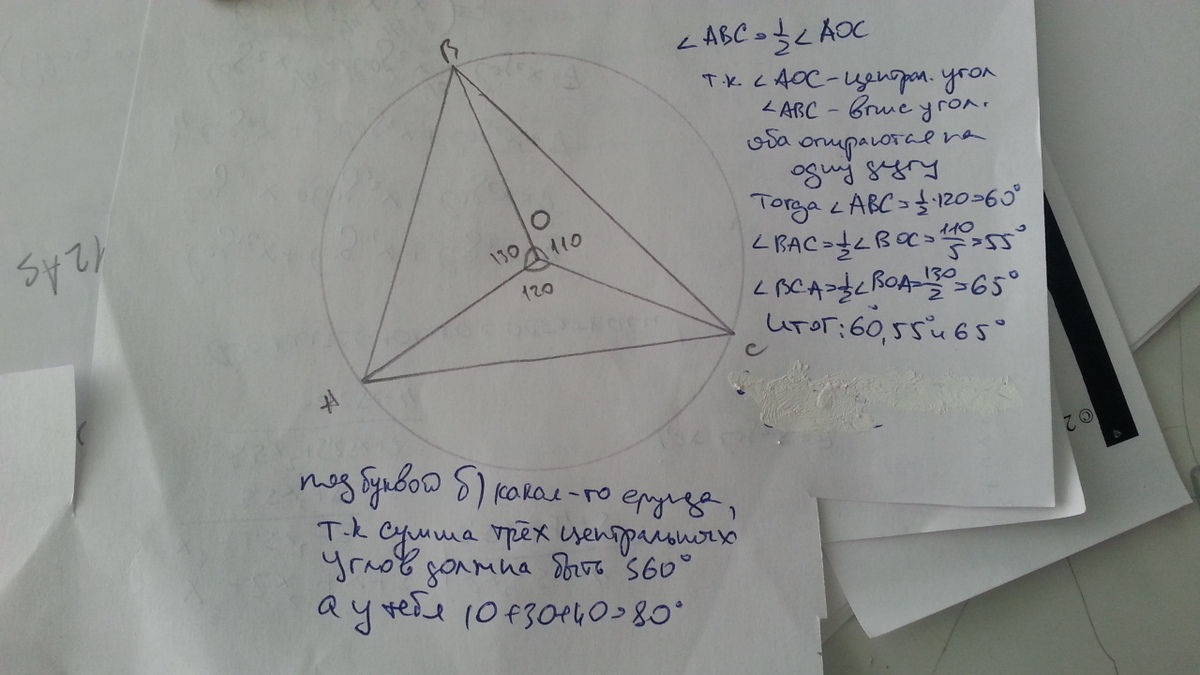 ∠ABC = 1/2 ∠AOC
т.к. ∠AOC - централ. угол
∠ABC - впис угол.
оба опираются на
одну дугу
Тогда ∠ABC = 1/2 · 120 = 60°
∠BAC = 1/2 ∠BOC = 110/5 = 55°
∠BCA = 1/2 ∠BOA = 130/2 = 65°
Итог: 60°, 55° и 65°
B
O
130 110
120
A
C
12 AS
© 2
под буквой б) какая-то ерунда,
т.к сумма трёх центральных
углов должна быть 360°
а у тебя 10+30+40=80°